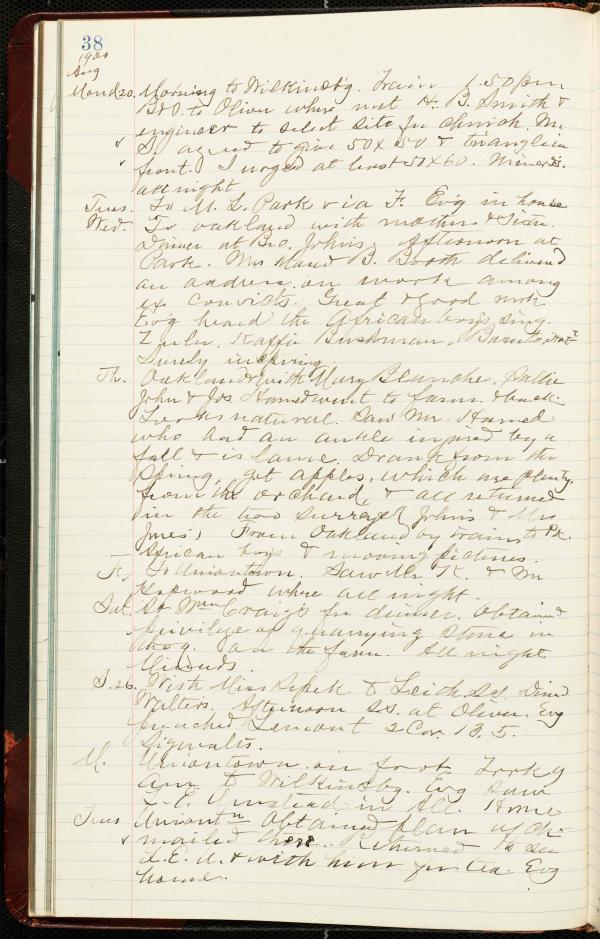 38
Aug
Mond 20. Morning to Wilkinsb'g. Train 1.50 pm
B&O. to Oliver where met H. B. Smith &
engineer to select site for church. Mr.
S. agreed to give 50 x 50 & triangle in
front. I urged at least 50 x 60.
all night
Tues. To M. L. Park via F. Ev'g in house
Wed. To Oakland with mother & Sister.
Dinner at Bro. John's. Afternoon at
Park. Mrs Maud B. Booth delivered
an address on work among
ex convicts. Great & good work
Ev'g heard the African boys sing.
Zulu, Kaffir Bushman, Basuto
Surely inspiring.
Th. Oakland with Mary Blanche, Sallie
John & Jos. went to farm & back
Looks natural. Saw Mr. Hamel
who had an ankle injured by a
fall & is lame. Drank from the
spring, got apples, which are plenty,
from the orchard, & all returned
in the two surreys John's & Mrs
From Oakland by train to Pk.
African boys & moving pictures.
F. To Uniontown. Saw Mr. K. & Mr
Hopwood where all night.
Sat. At Wm Craig's for dinner. Obtained
privilege of quarrying stone in
on the farm. All night
S. 26. With Miss & Leith SS. Dined
Walters. Afternoon SS. at Oliver. Evg
preached Lemont 2 Cor. 13. 5.
M. Uniontown on foot. Took 9
a.m. to Wilkinsbg. Evg saw
in All. Home
Tues Uniont'n Obtained plan of Ch.
mailed there. Returned to see
L. E. U. & with him for tea. Evg
home.